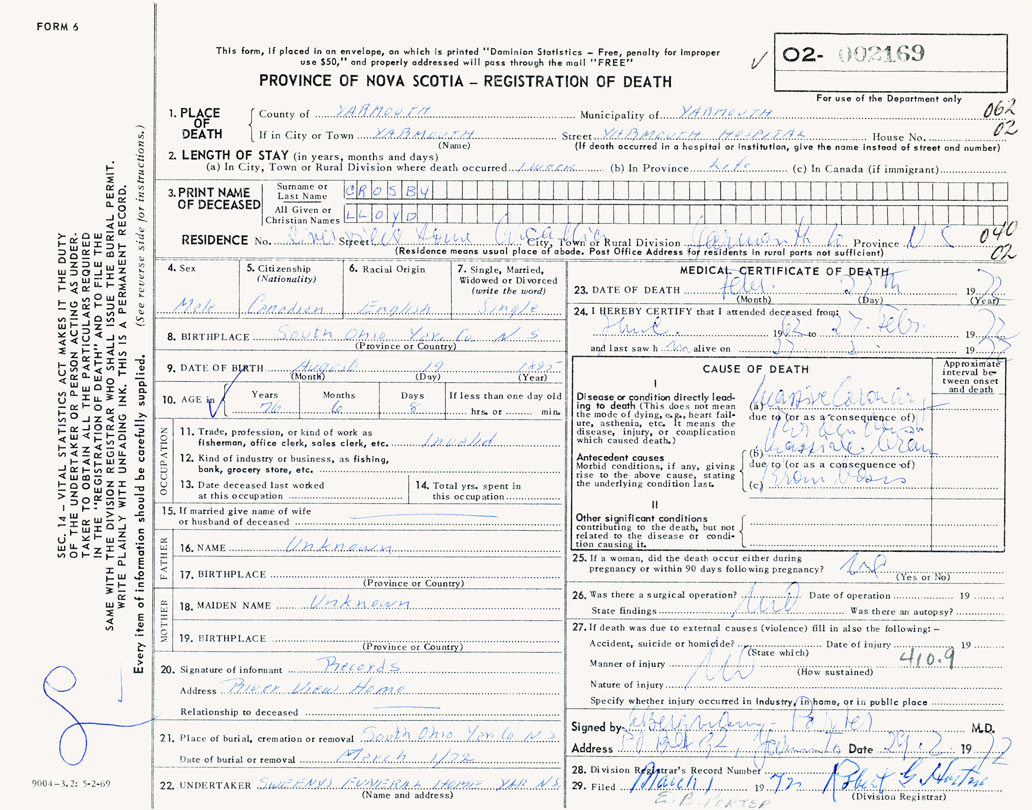 FORM 6
This form, if placed in an envelope, on which is printed "Dominion Statistics – Free, penalty for improper
use $50," and properly addressed will pass through the mail "FREE"
PROVINCE OF NOVA SCOTIA – REGISTRATION OF DEATH
O2- 002169
For use of the Department only
062
02
1. PLACE OF DEATH
County of YARMOUTH Municipality of YARMOUTH
If in City or Town YARMOUTH Street YARMOUTH HOSPITAL House No.
(Name) (If death occurred in a hospital or institution, give the name instead of street and number)
2. LENGTH OF STAY (in years, months and days)
(a) In City, Town or Rural Division where death occurred 1 week (b) In Province Life (c) In Canada (if immigrant)
3. PRINT NAME OF DECEASED
Surname or Last Name CROSBY
All Given or Christian Names LLOYD
RESIDENCE No. Riverview Street Home City, Town or Rural Division Yarmouth Co Province N S
(Residence means usual place of abode. Post Office Address for residents in rural parts not sufficient)
040
02
4. Sex
Male
5. Citizenship
(Nationality)
Canadian
6. Racial Origin
English
7. Single, Married,
Widowed or Divorced
(write the word)
Single
8. BIRTHPLACE South Ohio Yar. Co. N S
(Province or Country)
9. DATE OF BIRTH August 19 1895
(Month) (Day) (Year)
10. AGE in
Years Months Days If less than one day old
76 6 8 hrs. or min.
OCCUPATION
11. Trade, profession, or kind of work as
fisherman, office clerk, sales clerk, etc. Invalid
12. Kind of industry or business, as fishing,
bank, grocery store, etc.
13. Date deceased last worked
at this occupation
14. Total yrs. spent in
this occupation
15. If married give name of wife
or husband of deceased
FATHER
16. NAME Unknown
17. BIRTHPLACE
(Province or Country)
MOTHER
18. MAIDEN NAME Unknown
19. BIRTHPLACE
(Province or Country)
20. Signature of informant Records
Address River View Home
Relationship to deceased
21. Place of burial, cremation or removal South Ohio Yar. Co N S
Date of burial or removal March 1/72
22. UNDERTAKER SWEENYS FUNERAL HOME YAR N.S.
(Name and address)
MEDICAL CERTIFICATE OF DEATH
23. DATE OF DEATH Febr. 27th 1972
(Month) (Day) (Year)
24. I HEREBY CERTIFY that I attended deceased from:
1962 to 27. Febr. 1972
and last saw him alive on 27 2 1972
CAUSE OF DEATH
Approximate
interval be-
tween onset
and death
I
Disease or condition directly lead-
ing to death (This does not
mean the mode of dying, e.g., heart fail-
ure, asthenia, etc. It means the
disease, injury, or complication
which caused death.)
(a) Massive Coronary
due to (or as a consequence of)
Antecedent causes
Morbid conditions, if any, giving
rise to the above cause, stating
the underlying condition last.
(b) Massive
due to (or as a consequence of)
(c)
II
Other significant conditions
contributing to the death, but not
related to the disease or condi-
tion causing it.
25. If a woman, did the death occur either during
pregnancy or within 90 days following pregnancy?
(Yes or No)
26. Was there a surgical operation? No Date of operation 19
State findings Was there an autopsy?
27. If death was due to external causes (violence) fill in also the following: –
Accident, suicide or homicide? Date of injury 19
(State which)
410.9
Manner of injury No
(How sustained)
Nature of injury
Specify whether injury occurred in industry, in home, or in public place
Signed by M.D.
Address Date 29.2 1972
28. Division Registrar's Record Number
29. Filed March 1 1972 Robert G.
(Division Registrar)
E. B. PORTER
SEC. 14 – VITAL STATISTICS ACT MAKES IT THE DUTY
OF THE UNDERTAKER OR PERSON ACTING AS UNDER-
TAKER TO OBTAIN ALL THE PARTICULARS REQUIRED
IN THE "REGISTRATION OF DEATH" AND TO FILE THE
SAME WITH THE DIVISION REGISTRAR WHO SHALL ISSUE THE BURIAL PERMIT.
WRITE PLAINLY WITH UNFADING INK. THIS IS A PERMANENT RECORD.
Every item of information should be carefully supplied. (See reverse side for instructions.)
9004-3.2: 5-2-69